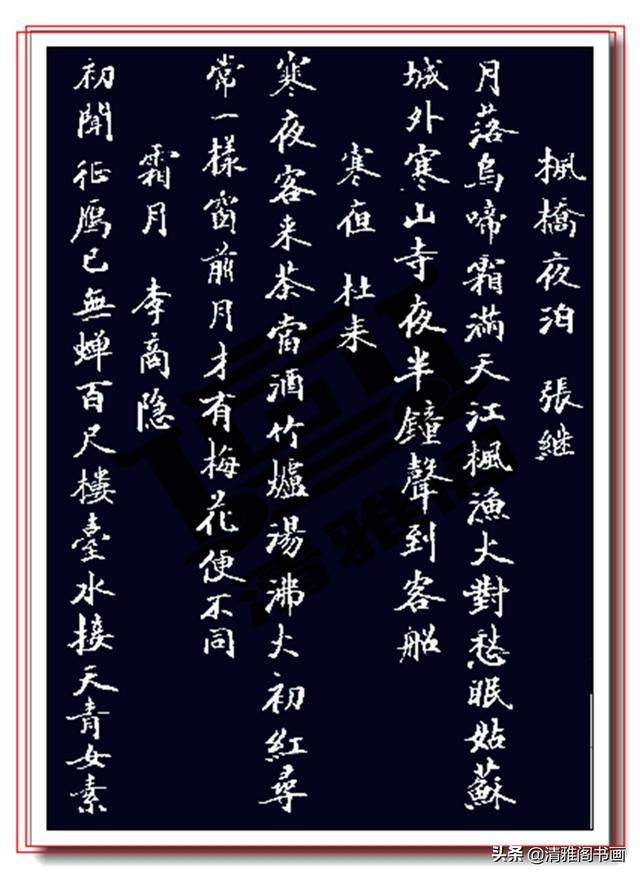 楓橋夜泊 張継
月落烏啼霜滿天江楓漁火對愁眠姑蘇
城外寒山寺夜半鐘聲到客船
寒夜 杜耒
寒夜客来茶當酒竹爐湯沸火初紅尋
常一樣窗前月才有梅花便不同
霜月 李商隐
初聞征鴈已無蝉百尺樓臺水接天青女素
清雅阁
头条 @清雅阁书画